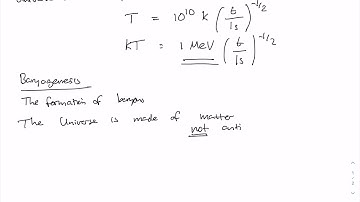 T = 10^10 K (t/1s)^-1/2
KT = 1 MeV (t/1s)^-1/2
Baryogenesis
The formation of baryons
The Universe is made of matter
not anti